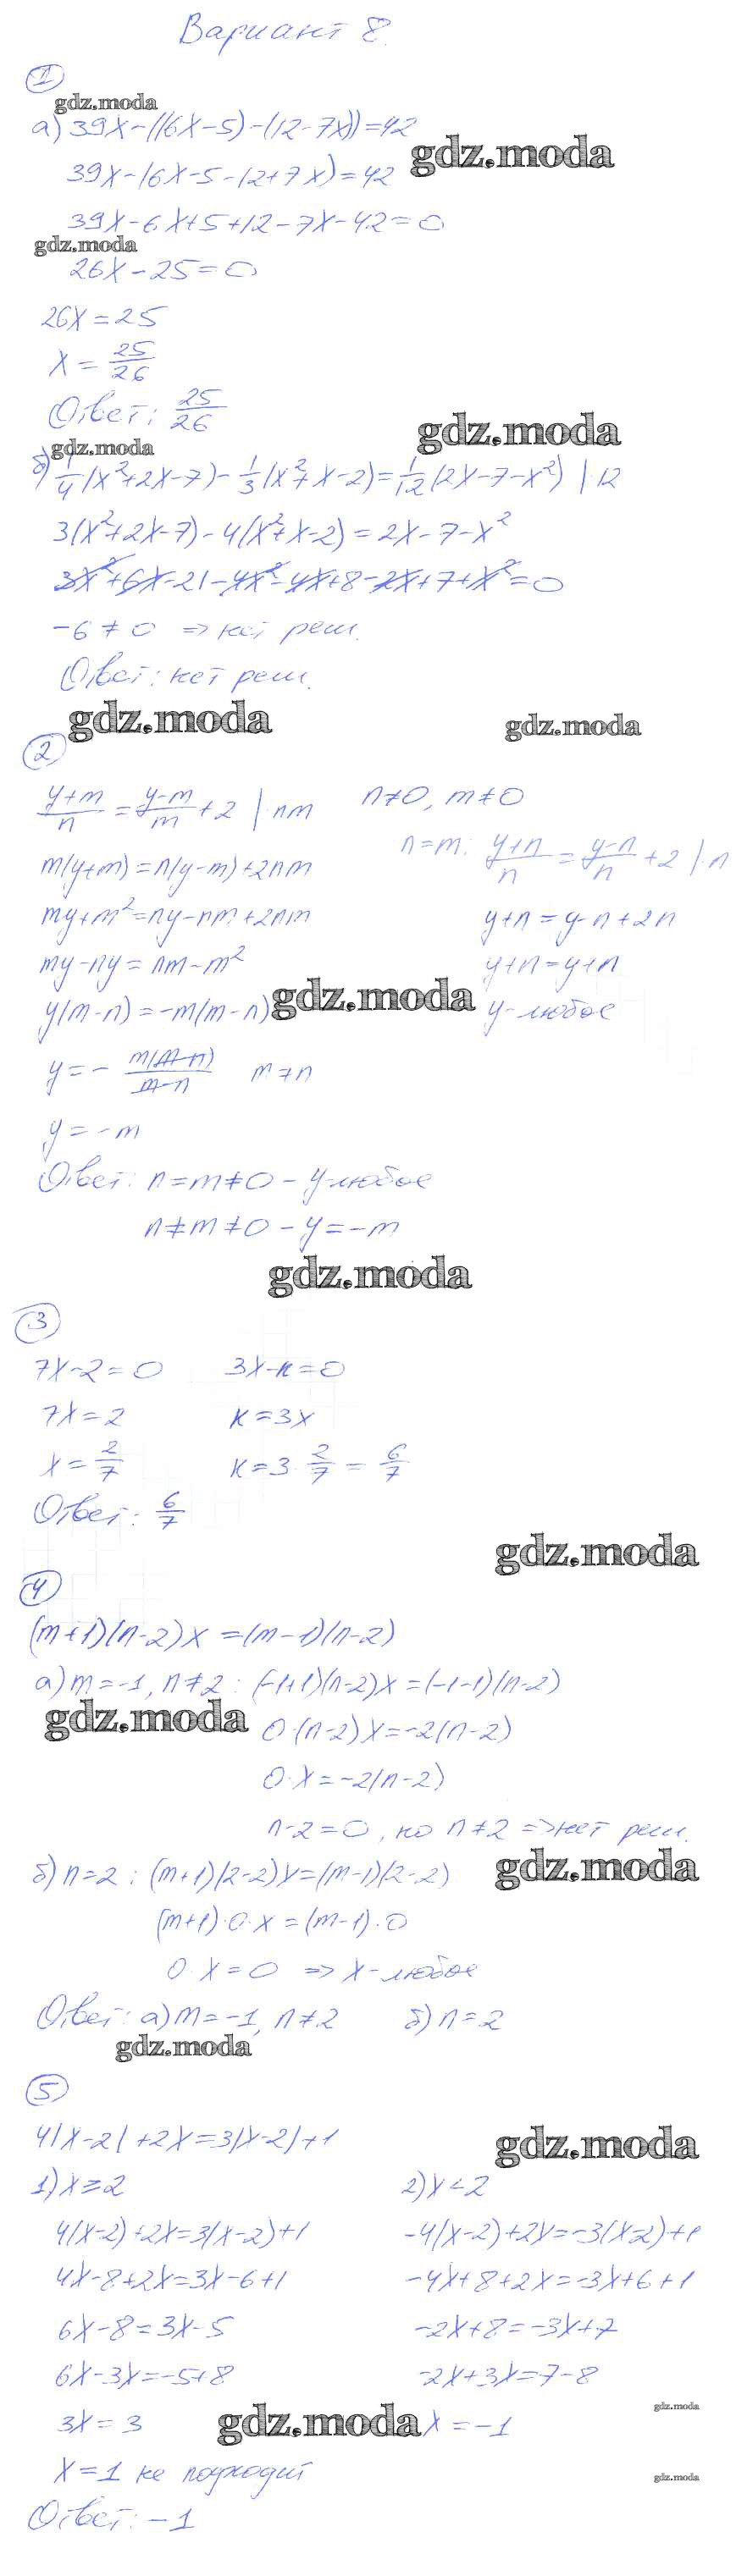 Вариант 8.
1
gdz.moda
а) 39x-((6x-5)-(12-7x))=42
gdz.moda
39x-(6x-5-12+7x)=42
39x-6x+5+12-7x-42=0
gdz.moda
26x-25=0
26x=25
x=25/26
Ответ: 25/26
gdz.moda
gdz.moda
б) 1/4(x²+2x-7)-1/3(x²+x-2)=1/12(2x-7-x²) |·12
3(x²+2x-7)-4(x²+x-2)=2x-7-x²
3x²+6x-21-4x²-4x+8-2x+7+x²=0
-6≠0 => нет реш.
Ответ: нет реш.
gdz.moda
gdz.moda
2
(y+m)/n=(y-m)/m+2 |·nm n≠0, m≠0
n=m: (y+n)/n=(y-n)/n+2 |·n
m(y+m)=n(y-m)+2nm
my+m²=ny-nm+2nm y+n=y-n+2n
my-ny=nm-m² y+n=y+n
y(m-n)=-m(m-n) gdz.moda y-любое
y=-m(m-n)/(m-n) m≠n
y=-m
Ответ: n=m≠0-y-любое
n≠m≠0-y=-m
gdz.moda
3
7x-2=0 3x-к=0
7x=2 к=3x
x=2/7 к=3·2/7=6/7
Ответ: 6/7
gdz.moda
4
(m+1)(n-2)x=(m-1)(n-2)
а) m=-1, n≠2: (-1+1)(n-2)x=(-1-1)(n-2)
gdz.moda 0·(n-2)x=-2(n-2)
0·x=-2(n-2)
n-2=0, но n≠2 => нет реш.
б) n=2: (m+1)(2-2)x=(m-1)(2-2) gdz.moda
(m+1)·0·x=(m-1)·0
0·x=0 => x-любое
Ответ: а) m=-1, n≠2 б) n=2
gdz.moda
5
4|x-2|+2x=3|x-2|+1 gdz.moda
1) x≥2 2) x<2
4(x-2)+2x=3(x-2)+1 -4(x-2)+2x=-3(x-2)+1
4x-8+2x=3x-6+1 -4x+8+2x=-3x+6+1
6x-8=3x-5 -2x+8=-3x+7
6x-3x=-5+8 -2x+3x=7-8
gdz.moda
3x=3 gdz.moda x=-1
x=1 не подходит
gdz.moda
Ответ: -1